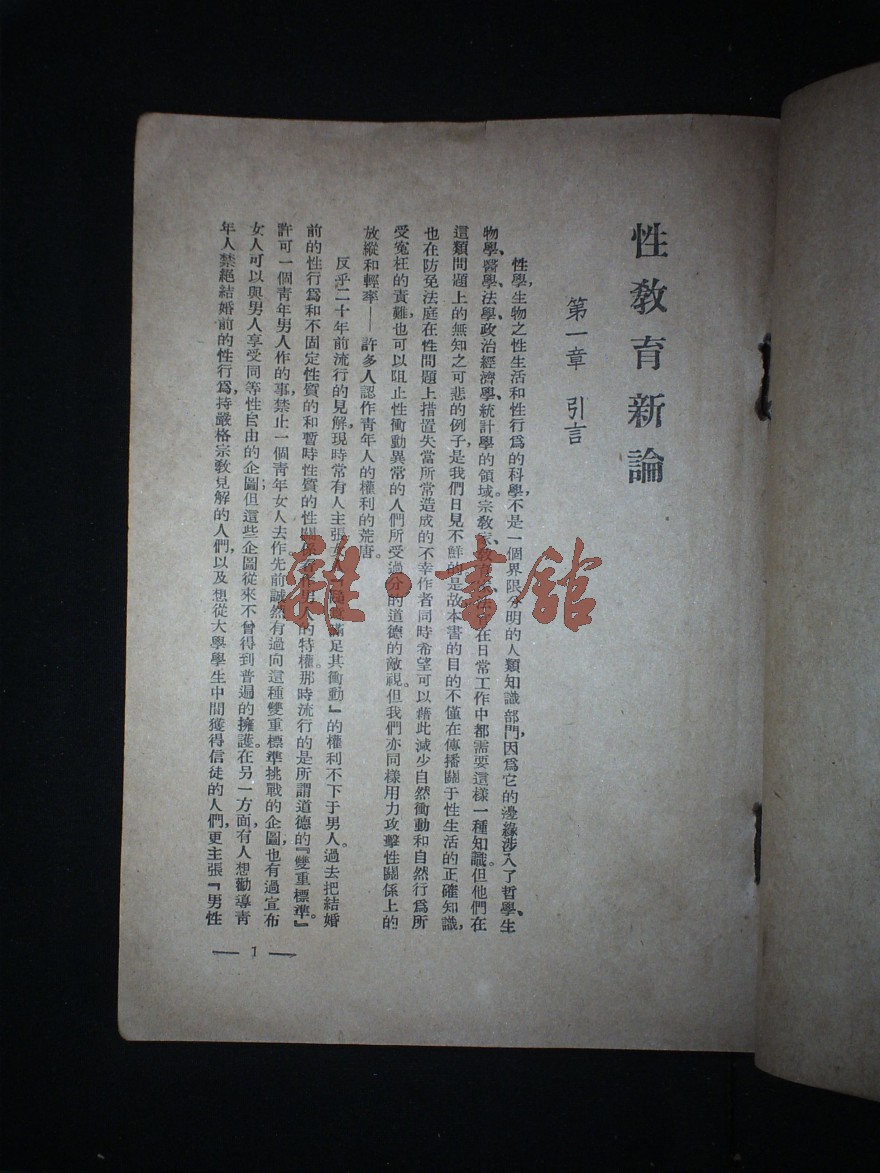 性教育新論
第一章 引言
性學,生物之性生活和性行爲的科學,不是一個界限分明的人類知識部門,因爲它的邊緣涉入了哲學、生
物學、醫學、法學、政治經濟學、統計學的領域。宗教家、教育家、法官在日常工作中都需要這樣一種知識。但他們在
這類問題上的無知之可悲的例子,是我們日見不鮮的。故本書的目的不僅在傳播關于性生活的正確知識,
也在防免法庭在性問題上措置失當所常造成的不幸。作者同時希望可以藉此減少自然衝動和自然行爲所
受冤枉的責難,也可以阻止性衝動異常的人們所受過分的道德的敵視。但我們亦同樣用力攻擊性關係上的
放縱和輕率——許多人認作青年人的權利的荒唐。
反乎二十年前流行的見解,現時常有人主張女人滿足其衝動』的權利不下于男人。過去把結婚
前的性行爲和不固定性質的和暫時性質的性關係看作男人的特權。那時流行的是所謂道德的『雙重標準』。
許可一個青年男人作的事,禁止一個青年女人去作。先前誠然有過向這種雙重標準挑戰的企圖,也有過宣布
女人可以與男人享受同等性自由的企圖;但這些企圖從來不曾得到普遍的擁護。在另一方面,有人想勸導青
年人禁絕結婚前的性行爲,持嚴格宗教見解的人們,以及想從大學學生中間獲得信徒的人們,更主張『男性
— 1 —
雜·書館